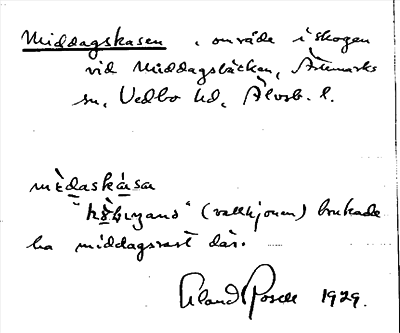 Middagskasen, område i skogen
vid Middagsbäcken, Ärtemarks
sn, Vedbo hd, Älvsb. l.
mèdaskása
(vallhjonen) brukade
ha middagsrast där.
Erland Rosell 1929.